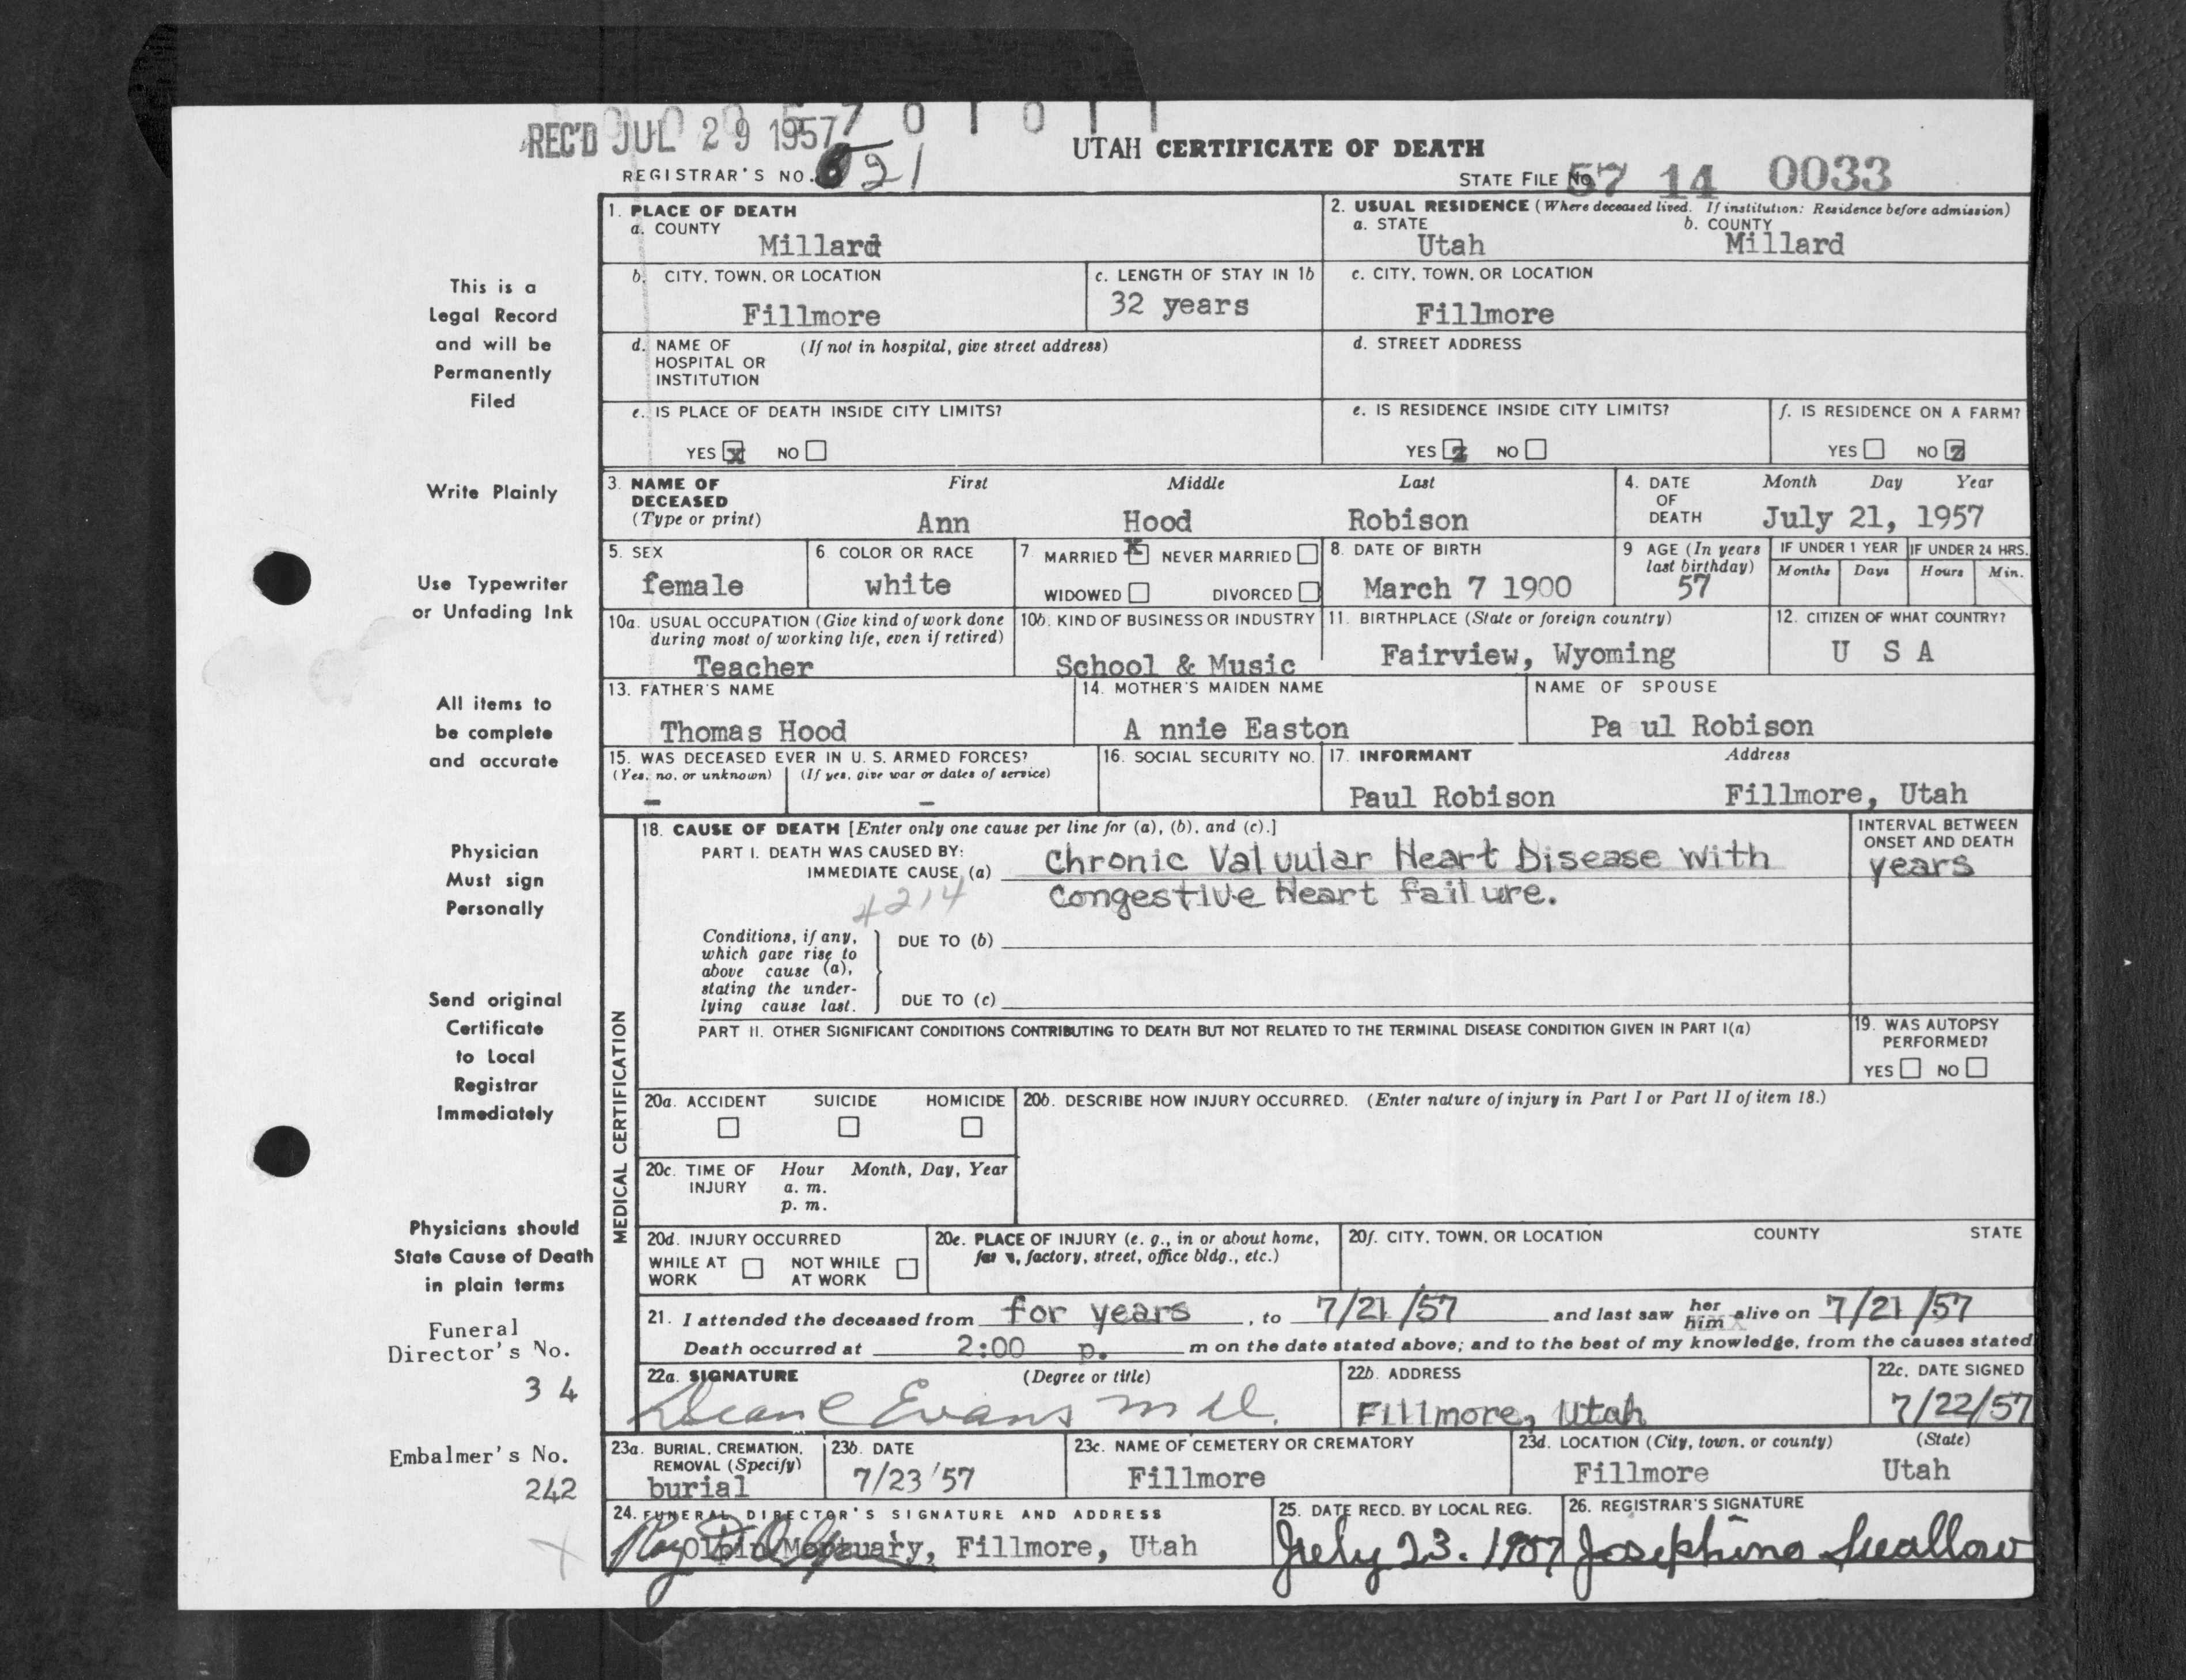 REC'D JUL 29 1957
UTAH CERTIFICATE OF DEATH
REGISTRAR'S NO. 21
STATE FILE No. 57 14 0033
This is a
Legal Record
and will be
Permanently
Filed
Write Plainly
Use Typewriter
or Unfading Ink
All items to
be complete
and accurate
Physician
Must sign
Personally
Send original
Certificate
to Local
Registrar
Immediately
Physicians should
State Cause of Death
in plain terms
Funeral
Director's No.
3 4
Embalmer's No.
242
1. PLACE OF DEATH
a. COUNTY
Millard
2. USUAL RESIDENCE (Where deceased lived. If institution: Residence before admission)
a. STATE b. COUNTY
Utah Millard
b. CITY, TOWN, OR LOCATION
Fillmore
c. LENGTH OF STAY IN 1b
32 years
c. CITY, TOWN, OR LOCATION
Fillmore
d. NAME OF (If not in hospital, give street address)
HOSPITAL OR
INSTITUTION
d. STREET ADDRESS
e. IS PLACE OF DEATH INSIDE CITY LIMITS?
YES x NO
e. IS RESIDENCE INSIDE CITY LIMITS?
YES z NO
f. IS RESIDENCE ON A FARM?
YES NO z
3. NAME OF First Middle Last
DECEASED
(Type or print) Ann Hood Robison
4. DATE Month Day Year
OF
DEATH July 21, 1957
5. SEX
female
6. COLOR OR RACE
white
7. MARRIED x NEVER MARRIED
WIDOWED DIVORCED
8. DATE OF BIRTH
March 7 1900
9 AGE (In years
last birthday)
57
IF UNDER 1 YEAR IF UNDER 24 HRS.
Months Days Hours Min.
10a. USUAL OCCUPATION (Give kind of work done
during most of working life, even if retired)
Teacher
10b. KIND OF BUSINESS OR INDUSTRY
School & Music
11. BIRTHPLACE (State or foreign country)
Fairview, Wyoming
12. CITIZEN OF WHAT COUNTRY?
U S A
13. FATHER'S NAME
Thomas Hood
14. MOTHER'S MAIDEN NAME
A nnie Easton
NAME OF SPOUSE
Pa ul Robison
15. WAS DECEASED EVER IN U. S. ARMED FORCES?
(Yes, no, or unknown) (If yes, give war or dates of service)
– –
16. SOCIAL SECURITY NO.
17. INFORMANT Address
Paul Robison Fillmore, Utah
MEDICAL CERTIFICATION
18. CAUSE OF DEATH [Enter only one cause per line for (a), (b), and (c).]
PART I. DEATH WAS CAUSED BY:
IMMEDIATE CAUSE (a) Chronic Valvular Heart Disease with
Congestive Heart failure.
4214
INTERVAL BETWEEN
ONSET AND DEATH
years
Conditions, if any,
which gave rise to
above cause (a),
stating the under-
lying cause last.
DUE TO (b)
DUE TO (c)
PART II. OTHER SIGNIFICANT CONDITIONS CONTRIBUTING TO DEATH BUT NOT RELATED TO THE TERMINAL DISEASE CONDITION GIVEN IN PART I(a)
19. WAS AUTOPSY
PERFORMED?
YES NO
20a. ACCIDENT SUICIDE HOMICIDE
20b. DESCRIBE HOW INJURY OCCURRED. (Enter nature of injury in Part I or Part II of item 18.)
20c. TIME OF Hour Month, Day, Year
INJURY a. m.
p. m.
20d. INJURY OCCURRED
WHILE AT WORK NOT WHILE AT WORK
20e. PLACE OF INJURY (e. g., in or about home,
factory, street, office bldg., etc.)
20f. CITY, TOWN, OR LOCATION COUNTY STATE
21. I attended the deceased from for years, to 7/21/57 and last saw her him alive on 7/21/57
Death occurred at 2:00 p. m on the date stated above; and to the best of my knowledge, from the causes stated
22a. SIGNATURE (Degree or title)
Evans M D.
22b. ADDRESS
Fillmore, Utah
22c. DATE SIGNED
7/22/57
23a. BURIAL, CREMATION,
REMOVAL (Specify)
burial
23b. DATE
7/23/57
23c. NAME OF CEMETERY OR CREMATORY
Fillmore
23d. LOCATION (City, town, or county) (State)
Fillmore Utah
24. FUNERAL DIRECTOR'S SIGNATURE AND ADDRESS
Olpin Mortuary, Fillmore, Utah
25. DATE RECD. BY LOCAL REG.
July 23. 1957
26. REGISTRAR'S SIGNATURE
Josephine Swallow